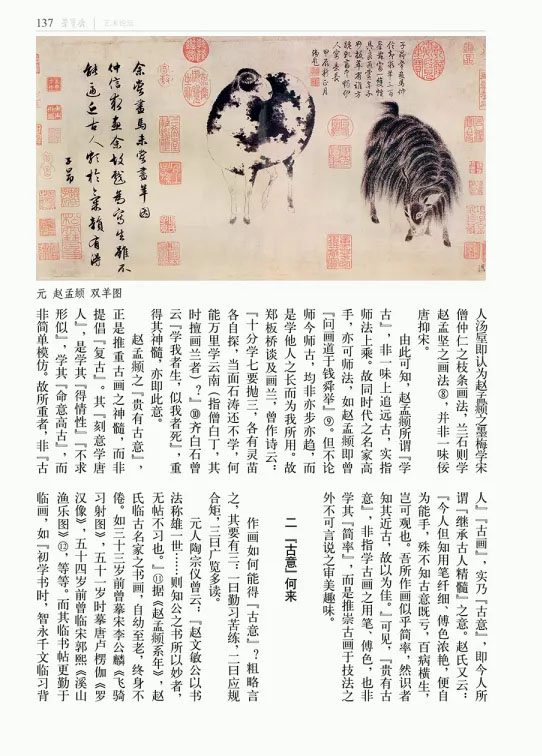 137
余嘗畫馬未嘗畫羊因
仲信求畫余故戲為寫生雖不
能逼近古人頗於氣韻有得
子昂
元 赵孟頫 双羊图
人汤垕即认为赵孟頫之墨梅学宋
僧仲仁之枝条画法，兰石则学
赵孟坚之画法⑧，并非一味佞
唐抑宋。
由此可知，赵孟頫所谓『学
古』，非一味上追远古，实指
师法上乘。故同时代之名家高
手，亦可师法，如赵孟頫即曾
『问画道于钱舜举』⑨。但不论
师今师古，均非亦步亦趋，而
是学他人之长而为我所用。故
郑板桥谈及画兰，曾作诗云：
『十分学七要抛三，各有灵苗
各自探，当面石涛还不学，何
能万里学云南（指僧白丁，其
时擅画兰者）？』⑩齐白石曾
云『学我者生，似我者死』，重
得其神髓，亦即此意。
赵孟頫之『贵有古意』，
正是推重古画之神髓，而非
提倡『复古』。其『刻意学唐
人』，是学其『得情性』『不求
形似』，学其『命意高古』，而
非简单模仿。故所重者，非『古
人』『古画』，实乃『古意』，即今人所
谓『继承古人精髓』之意。赵氏又云：
『今人但知用笔纤细、傅色浓艳，便自
为能手，殊不知古意既亏，百病横生，
岂可观也。吾所作画似乎简率，然识者
知其近古，故以为佳。』可见，『贵有古
意』，非指学古画之用笔、傅色，也非
学其『简率』，而是推崇古画于技法之
外不可言说之审美趣味。
二 『古意』何来
作画如何能得『古意』？粗略言
之，其要有三：一曰勤习苦练，二曰应规
合矩，三曰广览多读。
元人陶宗仪曾云：『赵文敏公以书
法称雄一世……则知公之书所以妙者，
无帖不习也。』⑪据《赵孟頫系年》，赵
氏临古名家之书画，自幼至老，终身不
倦。如三十三岁前曾摹宋李公麟《飞骑
习射图》，五十一岁时摹唐卢楞伽《罗
汉像》，五十四岁前曾临宋郭熙《溪山
渔乐图》⑫，等等。而其临书帖更勤于
临画，如『初学书时，智永千文临习背